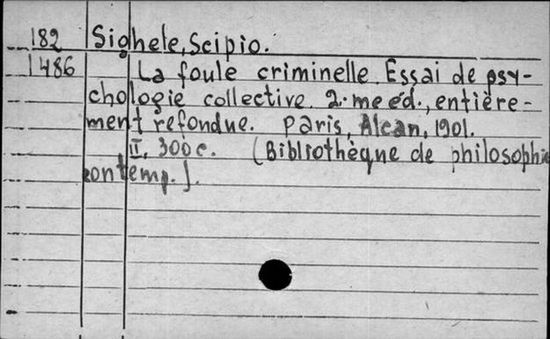 182 Sighele, Scipio.
1486 La foule criminelle. Essai de psy-
chologie collective. 2.me éd., entière-
ment refondue. Paris, Alcan, 1901.
II, 300 c. (Bibliothèque de philosophie
contemp.).